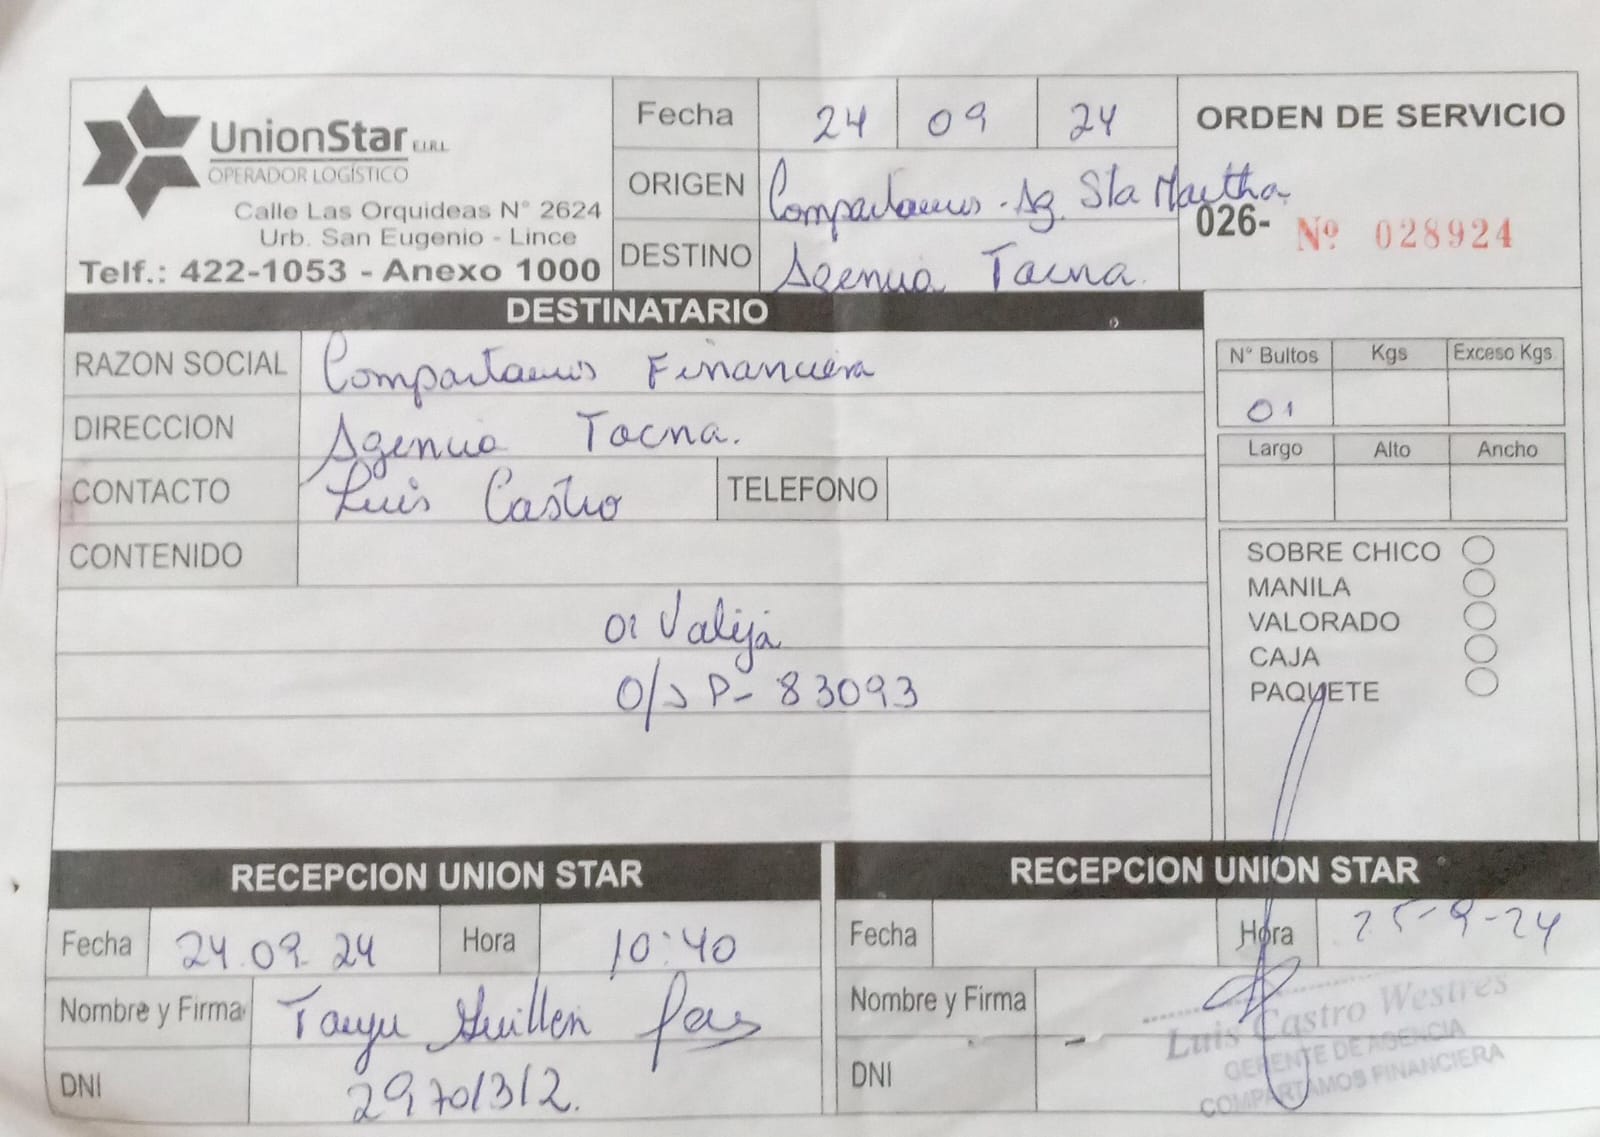 UnionStar E.I.R.L.
OPERADOR LOGÍSTICO
Calle Las Orquideas N° 2624
Urb. San Eugenio - Lince
Telf.: 422-1053 - Anexo 1000
Fecha 24 09 24
ORIGEN Compartamos - Ag. Sta Martha
DESTINO Agencia Tacna.
ORDEN DE SERVICIO
026- Nº 028924
DESTINATARIO
RAZON SOCIAL Compartamos Financiera
DIRECCION Agencia Tacna.
CONTACTO Luis Castro TELEFONO
CONTENIDO
01 Valija
O/S P- 83093
N° Bultos Kgs Exceso Kgs.
01
Largo Alto Ancho
SOBRE CHICO
MANILA
VALORADO
CAJA
PAQUETE
RECEPCION UNION STAR
Fecha 24.09.24 Hora 10:40
Nombre y Firma Guillen
DNI 29701312.
RECEPCION UNION STAR
Fecha Hora 25-9-24
Nombre y Firma
DNI
Luis Castro Westres
GERENTE DE AGENCIA
COMPARTAMOS FINANCIERA